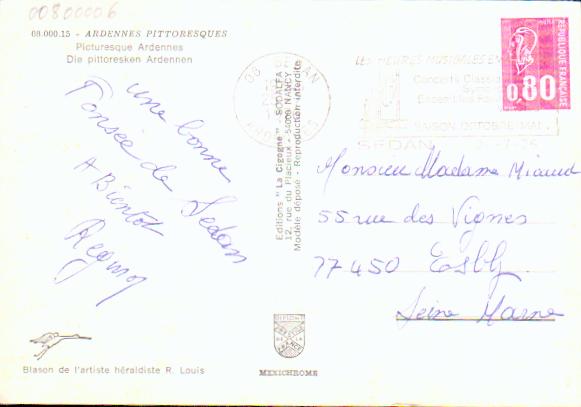 00800006
08.000.15 - ARDENNES PITTORESQUES
Picturesque Ardennes
Die pittoresken Ardennen
une bonne
Pensée de Sedan
A Bientôt
Editions "La Cigogne" - SODALFA
12, rue du Placieux - 54000 NANCY
Modèle déposé - Reproduction interdite
08 SEDAN
ARDENNES
LES HEURES MUSICALES
SAISON OCTOBRE MAI
SEDAN
0,80
REPUBLIQUE FRANÇAISE
Monsieur Madame Miaud
55 rue des Vignes
77450 Esbly
Seine Marne
Blason de l'artiste héraldiste R. Louis
MEXICHROME